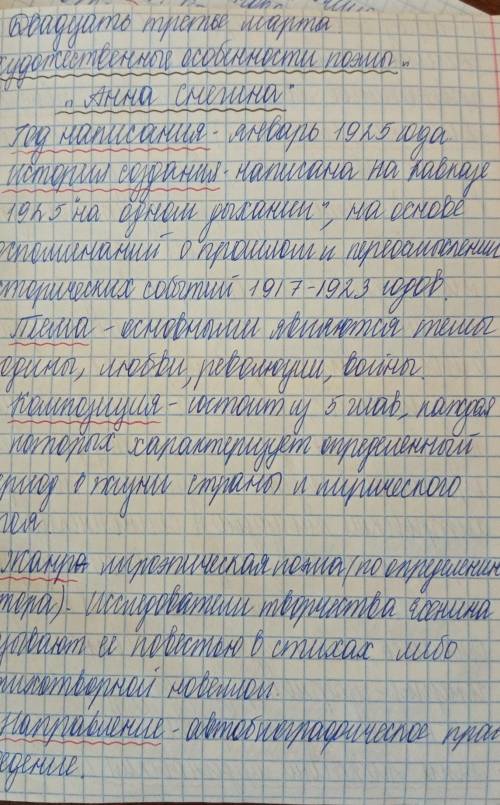 Двадцать третье марта
художественные особенности поэмы
"Анна Снегина"
Год написания - январь 1925 года
История создания - написана на Кавказе
1925 "на одном дыхании", на основе
оспоминаний о прошлом и переосмыслении
сторических событий 1917-1923 годов.
Тема - основными являются темы
одины, любви, революции, войны.
Композиция - состоит из 5 глав, каждая
которых характеризует определенный
ериод в жизни страны и лирического
роя.
Жанр лироэпическая поэма (по определению
тора). Исследователи творчества Есенина
зывают ее повестью в стихах либо
тихотворной новеллой.
Направление - автобиографическое прои
едение.